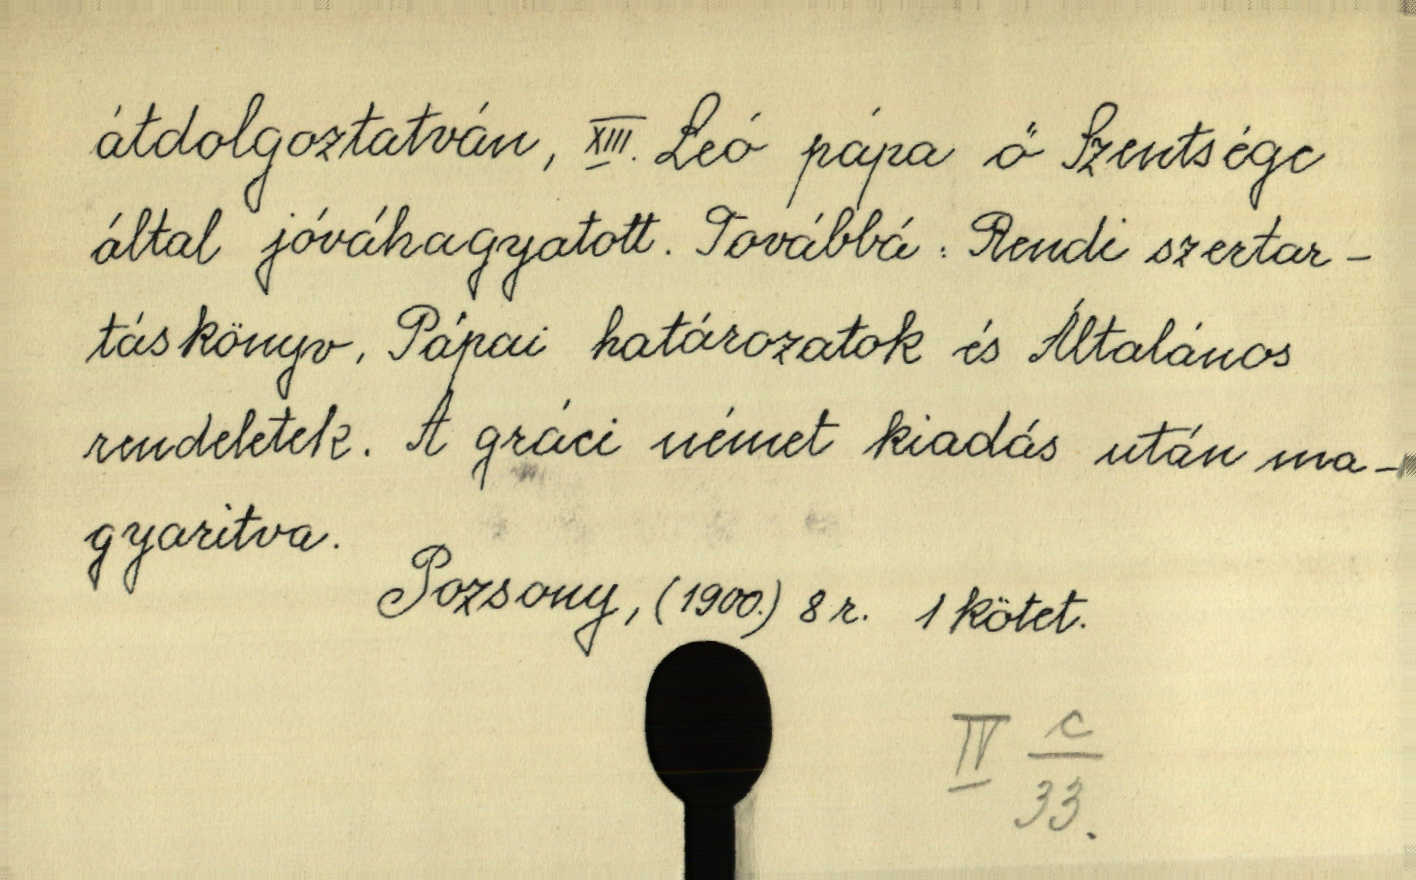 átdolgoztatván, XIII. Leó pápa ő Szentsége
által jóváhagyatott. Továbbá: Rendi szertar-
táskönyv, Pápai határozatok és Általános
rendeletek. A gráci német kiadás után ma-
gyaritva.
Pozsony, (1900.) 8 r. 1 kötet.
IV c
33.